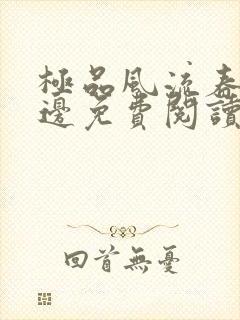 極品風流春
邊免費閱讀
回首無憂